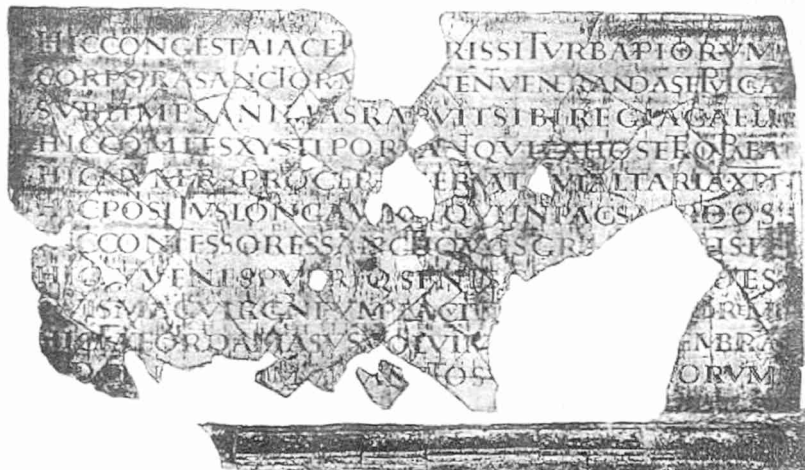 HIC CONGESTA IACET RIS SI TVRBA PIORVM
CORPORA SANCTORV NENT VENERANDA SEPVLCRA
SVBLIMES ANIMAS RAPVIT SIBI REGIA CAELI
HIC COMITES XYSTI PORTANT QVI EX HOSTE TROPAEA
HIC NVMERVS PROCERVM SERVAT QVI ALTARIA XPI
HIC POSITVS LONGA VIXIT QVI IN PACE SA DOS
HIC CONFESSORES SANCTI QVOS GR ISIT
HIC IVVENES PVERIQ SENES OTES
IS MAGE VIRGINEVM PLACVIT OREM
HIC FATEOR DAMASVS VOLVI EMBRA
TOS ORVM